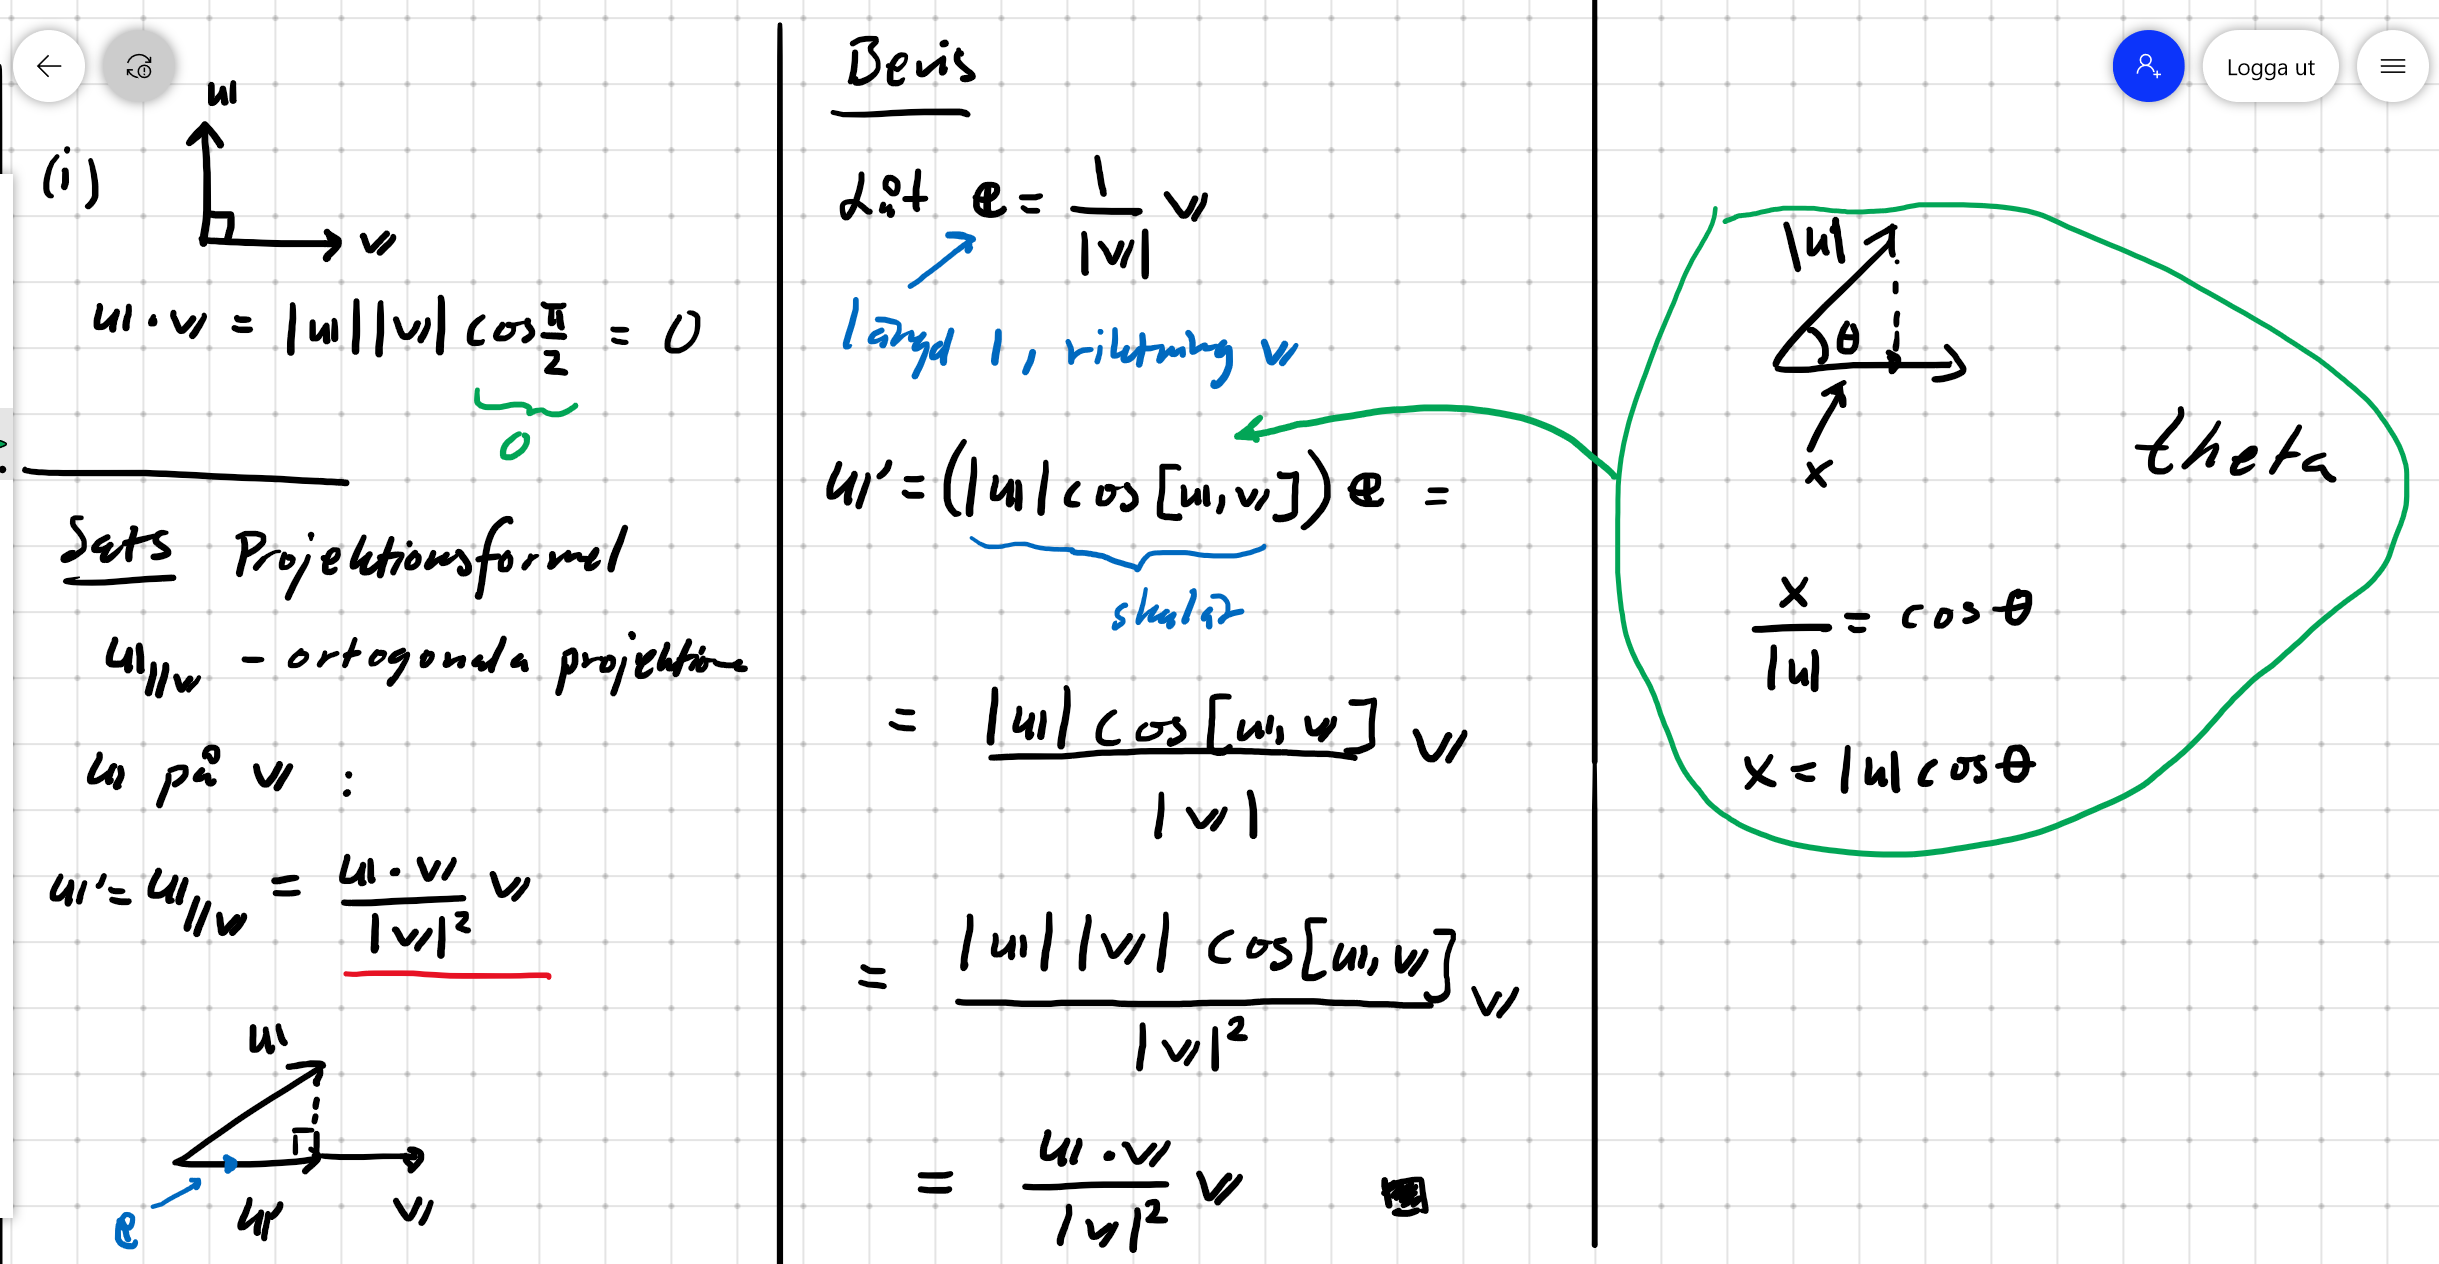 (i)
𝕦
𝕧
𝕦 · 𝕧 = |𝕦||𝕧| cos π/2 = 0
0
Sats Projektionsformel
𝕦∥𝕧 – ortogonala projektionen
𝕦 på 𝕧 :
𝕦' = 𝕦∥𝕧 = 𝕦 · 𝕧 / |𝕧|² 𝕧
𝕦
e 𝕦' 𝕧
Bevis
Låt e = 1/|𝕧| 𝕧
längd 1, riktning 𝕧
𝕦' = (|𝕦| cos [𝕦, 𝕧]) e =
skalär
= |𝕦| cos [𝕦, 𝕧] / |𝕧| 𝕧
= |𝕦||𝕧| cos [𝕦, 𝕧] / |𝕧|² 𝕧
= 𝕦 · 𝕧 / |𝕧|² 𝕧
Logga ut
|𝕦|
θ
x
theta
x/|𝕦| = cos θ
x = |𝕦| cos θ